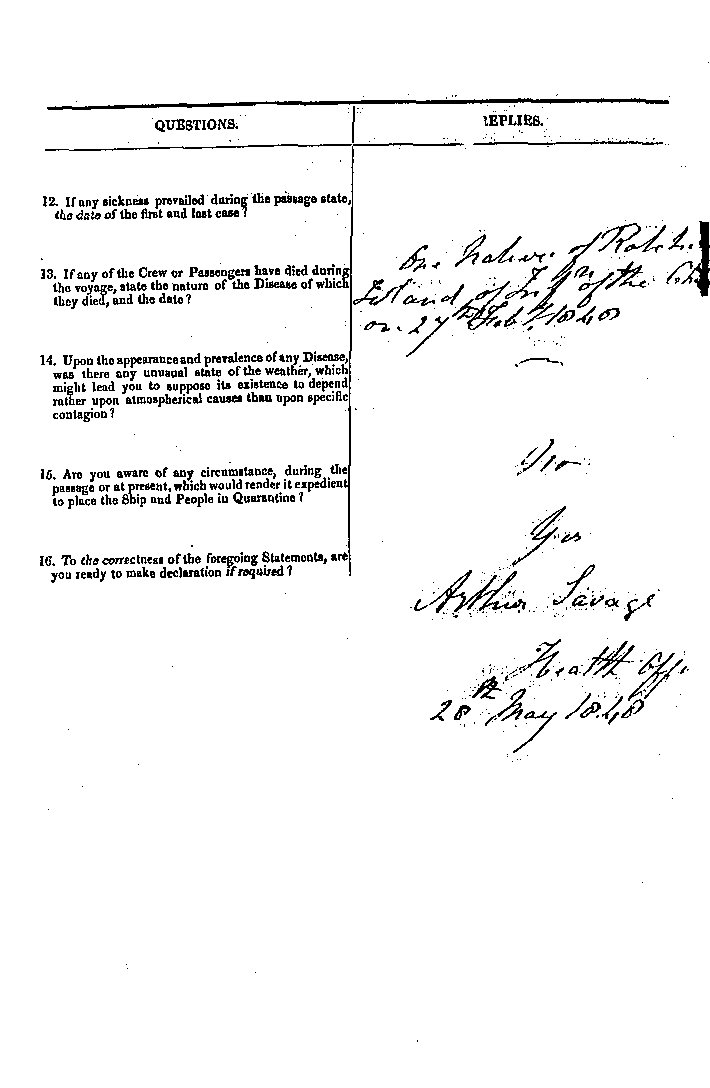 QUESTIONS.
REPLIES.
12. If any sickness prevailed during the passage state,
the date of the first and last case?
13. If any of the Crew or Passengers have died during
the voyage, state the nature of the Disease of which
they died, and the date?
One Native of
Island of of the
on 27th Feby. 1848
14. Upon the appearance and prevalence of any Disease,
was there any unusual state of the weather, which
might lead you to suppose its existence to depend
rather upon atmospherical causes than upon specific
contagion?
15. Are you aware of any circumstance, during the
passage or at present, which would render it expedient
to place the Ship and People in Quarantine?
16. To the correctness of the foregoing Statements, are
you ready to make declaration if required?
Yes
Arthur Savage
Health Offr
28th May 1848